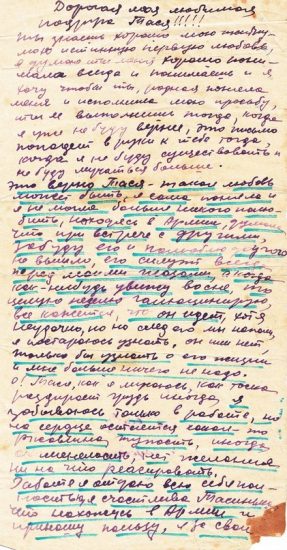 Дорогая моя любимая
подруга Тася!!!!!
Ты знаешь хорошо мою тайну
мою истинную первую любовь,
я думаю ты меня хорошо пони-
мала всегда и понимаешь и я
хочу чтоб ты, родная поняла
меня и исполнила мою просьбу,
ты её выполнишь тогда, когда
я уже не буду вернее, это письмо
попадет в руки к тебе тогда,
когда я не буду существовать и
не буду мучаться больше.
Это верно Тася – такая любовь
может быть, я сама поняла
не могла больше никого полю-
бить находясь в Армии, думала
что при встрече с другими,
забуду его и полюблю другого
не вышло, его силуэт всегда
перед моими глазами, а когда
как-нибудь увижу во сне, это
целую неделю галлюцинирую
все кажется, что он идет, хотя
неудачно, но но следого мы напали,
я постараюсь узнать, он или нет
только бы узнать о его жизни
и мне больше ничего не надо.
О! Тася, как я мучаюсь, как тоска
раздирает грудь иногда, я
забываюсь только в работе, но
на сердце остается какая-то
ржавчина, тупость, иногда
омертвелость, нет желания
ни на что реагировать.
Работе я отдаю всю себя пол-
ностью я счастлива Тасенька
что нахожусь в Армии и
приношу пользу, я за свои